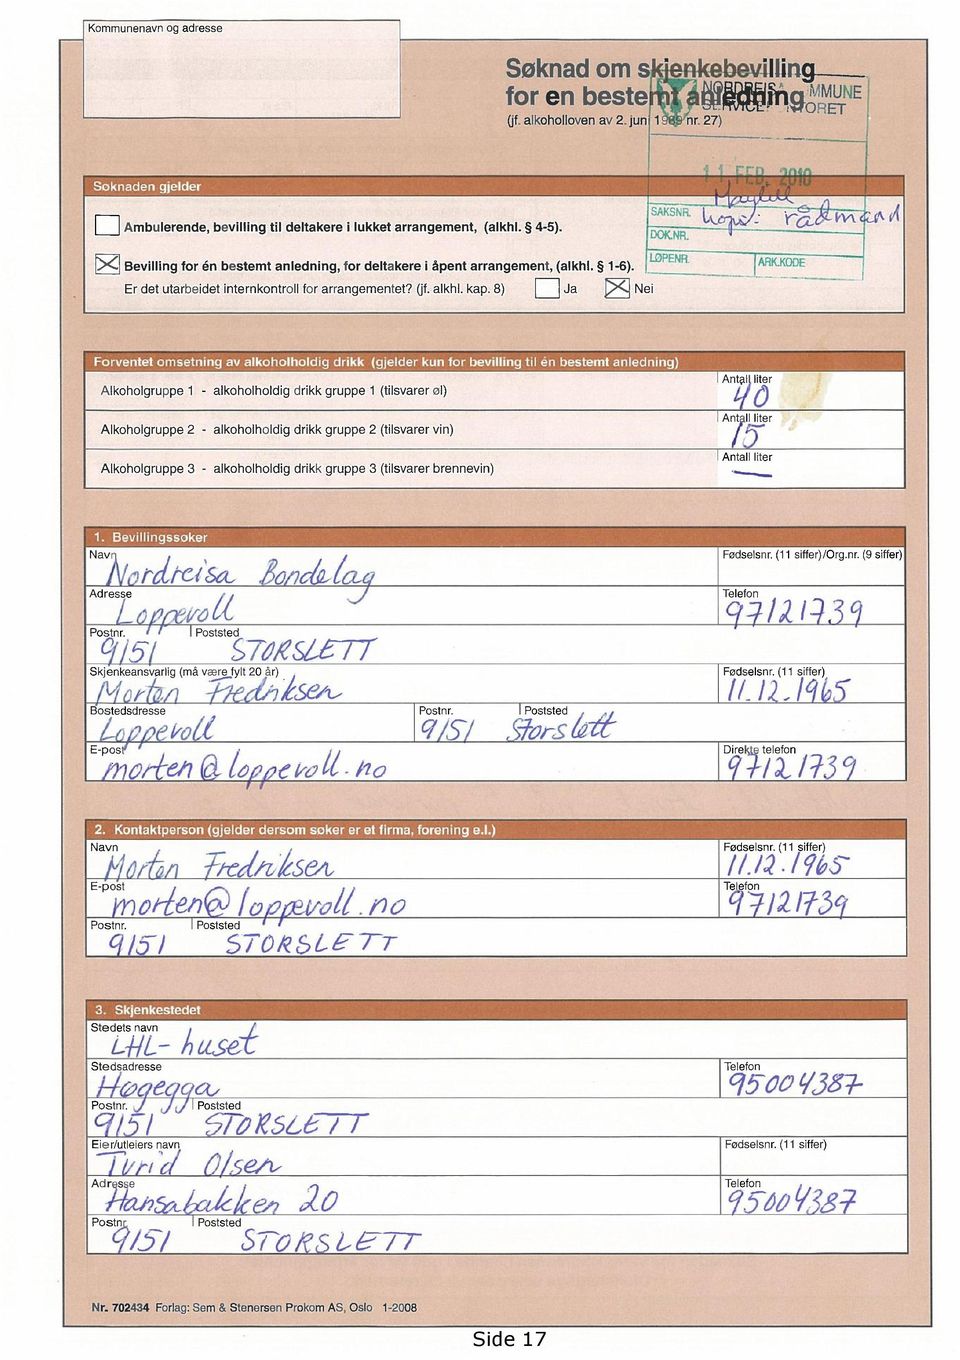 Kommunenavn og adresse
Søknad om skjenkebevilling
for en bestemt anledning
(jf. alkoholloven av 2. juni 1989 nr. 27)
NORDREISA KOMMUNE
SERVICEKONTORET
11. FEB. 2010
SAKSNR.
DOK.NR.
LØPENR.
ARK.KODE
Kopi: rådmand
Søknaden gjelder
Ambulerende, bevilling til deltakere i lukket arrangement, (alkhl. § 4-5).
Bevilling for én bestemt anledning, for deltakere i åpent arrangement, (alkhl. § 1-6).
Er det utarbeidet internkontroll for arrangementet? (jf. alkhl. kap. 8) Ja Nei
Forventet omsetning av alkoholholdig drikk (gjelder kun for bevilling til én bestemt anledning)
Alkoholgruppe 1 - alkoholholdig drikk gruppe 1 (tilsvarer øl) Antall liter
40
Alkoholgruppe 2 - alkoholholdig drikk gruppe 2 (tilsvarer vin) Antall liter
15
Alkoholgruppe 3 - alkoholholdig drikk gruppe 3 (tilsvarer brennevin) Antall liter
—
1. Bevillingssøker
Navn Fødselsnr. (11 siffer)/Org.nr. (9 siffer)
Nordreisa Bondelag
Adresse Telefon
Loppevoll 97121739
Postnr. Poststed
9151 STORSLETT
Skjenkeansvarlig (må være fylt 20 år) Fødselsnr. (11 siffer)
Morten Fredriksen 11.12.1965
Bostedsdresse Postnr. Poststed
Loppevoll 9151 Storslett
E-post Direkte telefon
morten@loppevoll.no 97121739
2. Kontaktperson (gjelder dersom søker er et firma, forening e.l.)
Navn Fødselsnr. (11 siffer)
Morten Fredriksen 11.12.1965
E-post Telefon
morten@loppevoll.no 97121739
Postnr. Poststed
9151 STORSLETT
3. Skjenkestedet
Stedets navn
LHL-huset
Stedsadresse Telefon
Høgegga 95004387
Postnr. Poststed
9151 STORSLETT
Eier/utleiers navn Fødselsnr. (11 siffer)
Turid Olsen
Adresse Telefon
Hansabakken 20 95004387
Postnr. Poststed
9151 STORSLETT
Nr. 702434 Forlag: Sem & Stenersen Prokom AS, Oslo 1-2008
Side 17